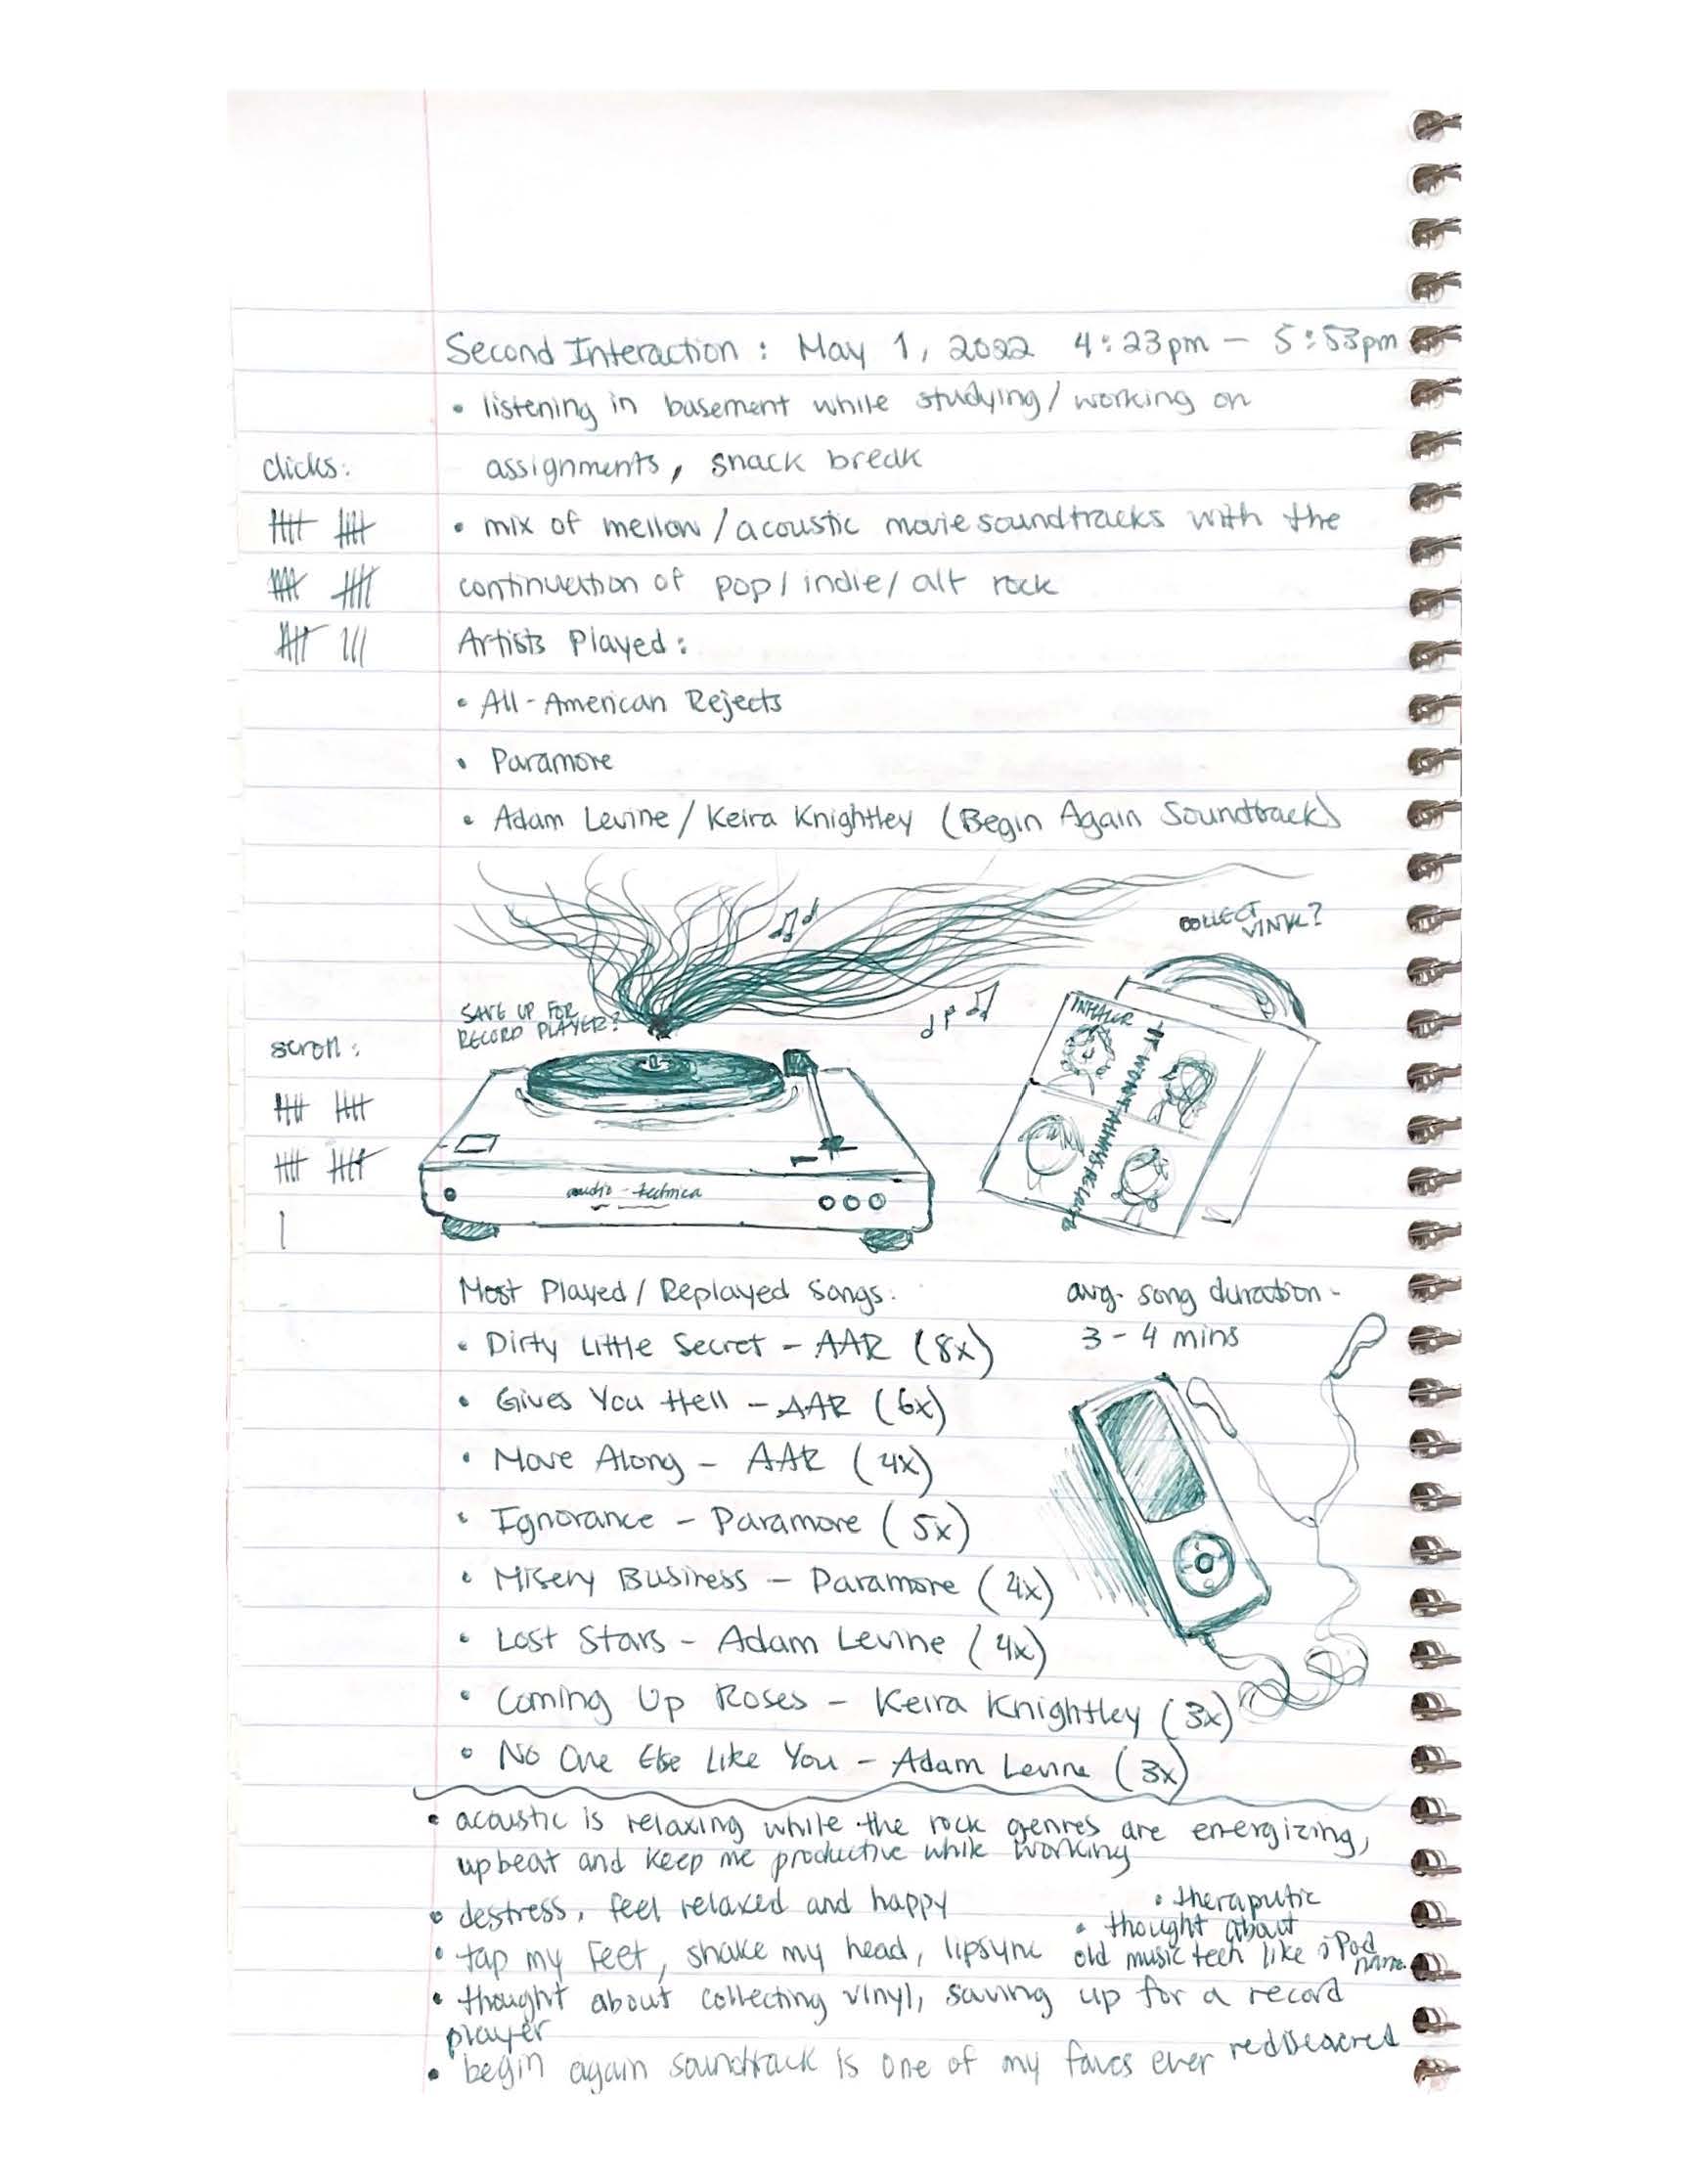 Second Interaction : May 1, 2022 4:23pm - 5:53pm
• listening in basement while studying/working on
assignments, snack break
clicks:
• mix of mellow/acoustic movie soundtracks with the
continuation of pop/indie/alt rock
Artists Played:
• All-American Rejects
• Paramore
• Adam Levine/Keira Knightley (Begin Again Soundtrack)
COLLECT
VINYL?
SAVE UP FOR
RECORD PLAYER?
INHALER
IT WON'T ALWAYS BE LIKE
scroll:
audio-technica
Most Played/Replayed Songs:
• Dirty Little Secret - AAR (8x)
• Gives You Hell - AAR (6x)
• Move Along - AAR (4x)
• Ignorance - Paramore (5x)
• Misery Business - Paramore (4x)
• Lost Stars - Adam Levine (4x)
• Coming Up Roses - Keira Knightley (3x)
• No One Else Like You - Adam Levine (3x)
avg. song duration -
3-4 mins
• acoustic is relaxing while the rock genres are energizing,
upbeat and keep me productive while working
• destress, feel relaxed and happy
• theraputic
• tap my feet, shake my head, lipsync
• thought about
old music tech like iPod
nano
• thought about collecting vinyl, saving up for a record
player
• begin again soundtrack is one of my faves ever